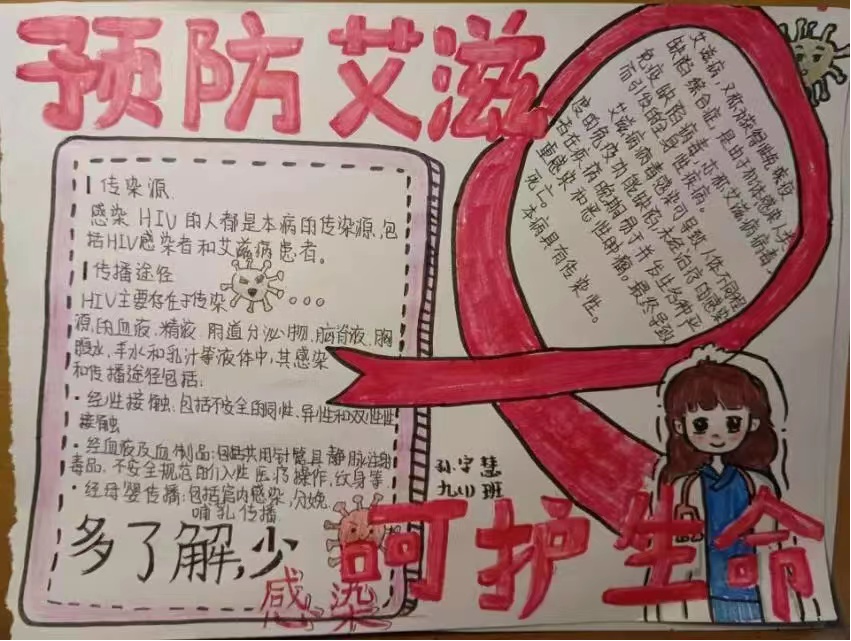 预防艾滋
传染源
感染 HIV 的人都是本病的传染源,包
括HIV感染者和艾滋病患者。
传播途径
HIV主要存在于传染
源,的血液.精液.阴道分泌物.脑脊液.胸
腹水,羊水和乳汁等液体中,其感染
和传播途径包括:
·经性接触:包括不安全的同性.异性和双性性
接触
·经血液及血制品:包括共用针管具静脉注射
毒品.不安全规范的介入性医疗操作,纹身等.
·经母婴传播:包括宫内感染,分娩.
哺乳传播
多了解,少
感染
艾滋病,又称获得性免疫
缺陷综合症,是由于机体感染人类
免疫缺陷病毒,亦称艾滋病病毒,
而引发的全身性疾病。
艾滋病病毒感染可导致人体不同程
度的免疫功能缺陷,未经治疗的感染
者在疾病晚期易于并发各种严
重感染和恶性肿瘤。最终导致
死亡。
本病具有传染性。
孙字慧
九(1)班
呵护生命